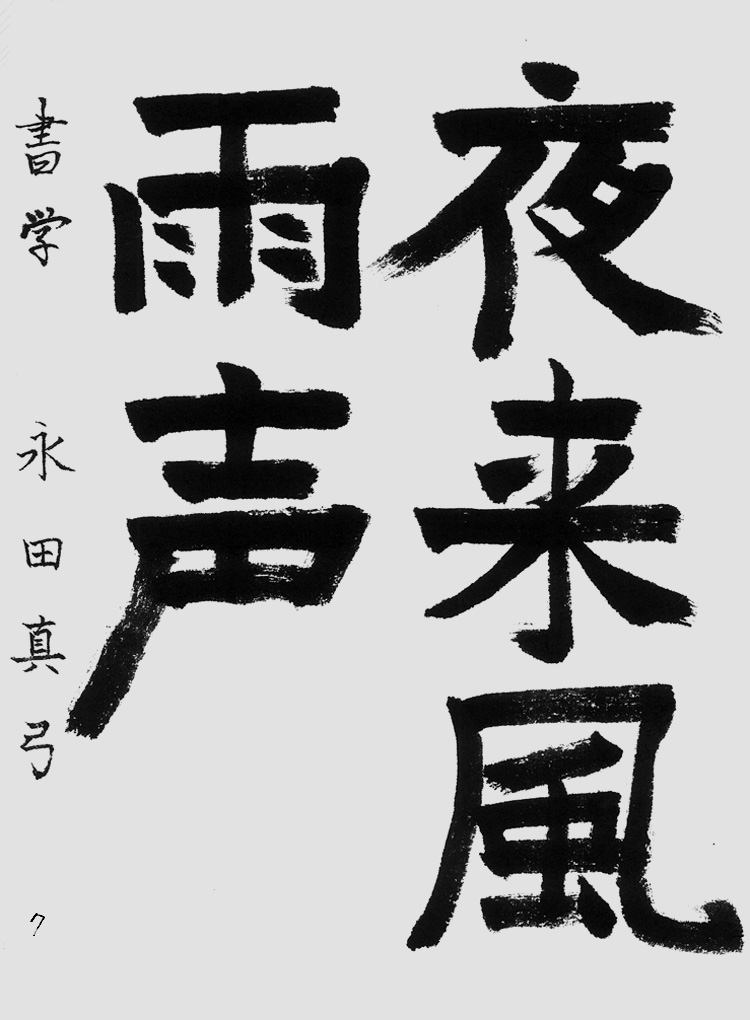 夜来風
雨声
書学 永田真弓
ク